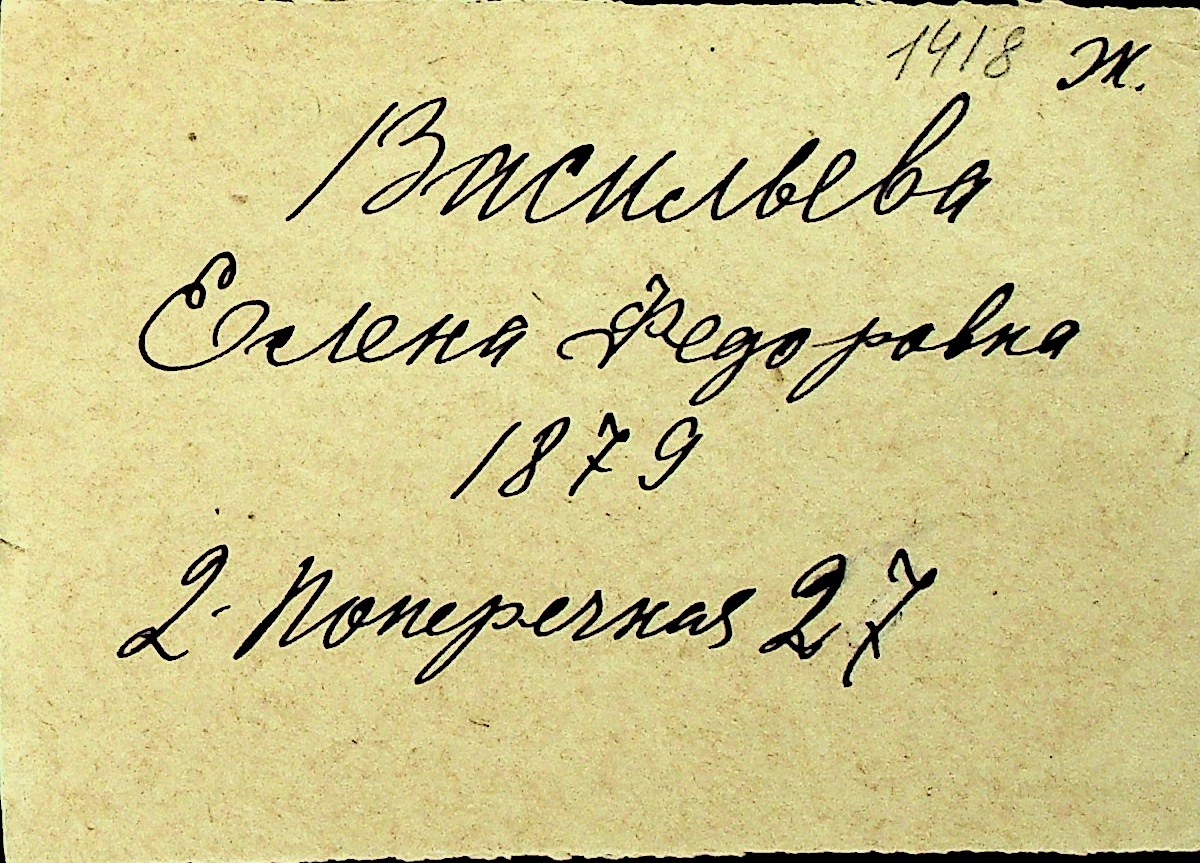 1418 ж.
Васильева
Елена Федоровна
1879
2. Поперечная 27